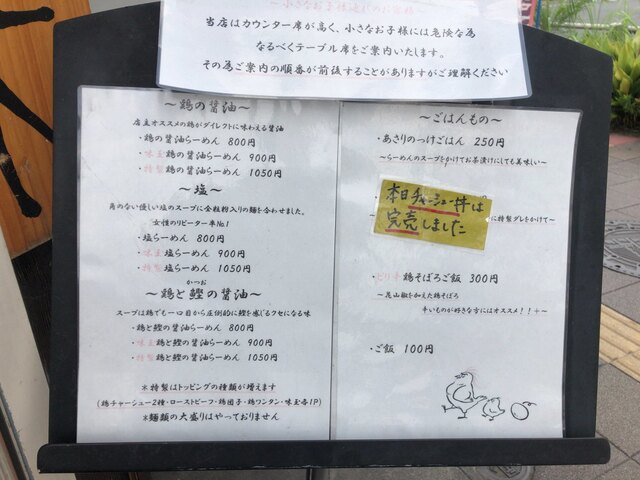 ～小さなお子様連れのお客様～
当店はカウンター席が高く、小さなお子様には危険な為
なるべくテーブル席をご案内いたします。
その為ご案内の順番が前後することがありますがご理解ください
～鶏の醤油～
店主オススメの鶏がダイレクトに味わえる醤油
・鶏の醤油らーめん 800円
・味玉鶏の醤油らーめん 900円
・特製鶏の醤油らーめん 1050円
～塩～
角のない優しい塩のスープに全粒粉入りの麺を合わせました。
女性のリピーター率№1
・塩らーめん 800円
・味玉塩らーめん 900円
・特製塩らーめん 1050円
かつお
～鶏と鰹の醤油～
スープは鶏でも一口目から圧倒的に鰹を感じるクセになる味
・鶏と鰹の醤油らーめん 800円
・味玉鶏と鰹の醤油らーめん 900円
・特製鶏と鰹の醤油らーめん 1050円
＊特製はトッピングの種類が増えます
(鶏チャーシュー2種・ローストビーフ・鶏団子・鶏ワンタン・味玉各1P)
＊麺類の大盛りはやっておりません
～ごはんもの～
・あさりのっけごはん 250円
～らーめんのスープをかけてお茶漬けにしても美味しい～
本日チャーシュー丼は
完売しました
に特製ダレをかけて～
・ピリ辛鶏そぼろご飯 300円
～花山椒を加えた鶏そぼろ
辛いものが好きな方にはオススメ！！＋～
・ご飯 100円